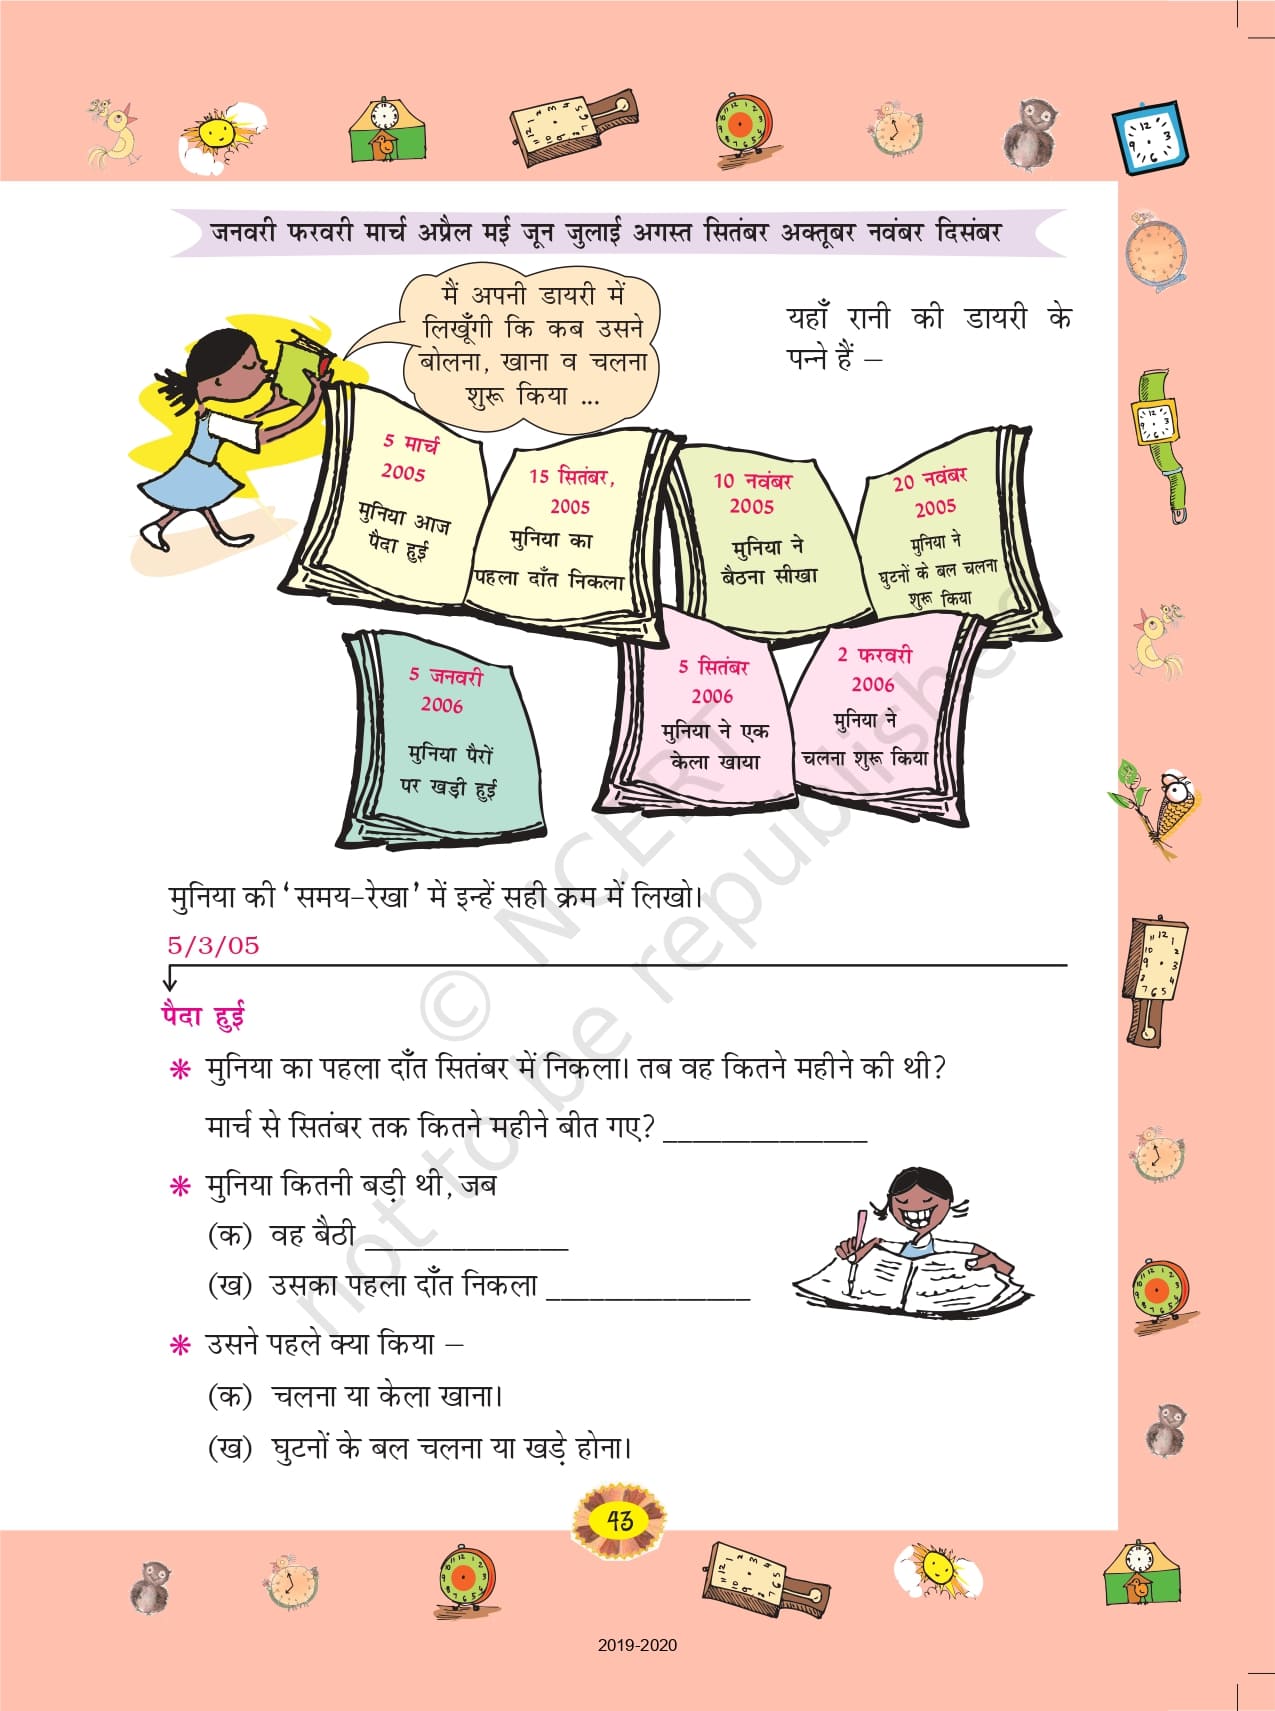 जनवरी फरवरी मार्च अप्रैल मई जून जुलाई अगस्त सितंबर अक्तूबर नवंबर दिसंबर
मैं अपनी डायरी में
लिखूँगी कि कब उसने
बोलना, खाना व चलना
शुरू किया ...
यहाँ रानी की डायरी के
पन्ने हैं –
5 मार्च
2005
मुनिया आज
पैदा हुई
15 सितंबर,
2005
मुनिया का
पहला दाँत निकला
10 नवंबर
2005
मुनिया ने
बैठना सीखा
20 नवंबर
2005
मुनिया ने
घुटनों के बल चलना
शुरू किया
5 जनवरी
2006
मुनिया पैरों
पर खड़ी हुई
5 सितंबर
2006
मुनिया ने एक
केला खाया
2 फरवरी
2006
मुनिया ने
चलना शुरू किया
मुनिया की ‘समय-रेखा’ में इन्हें सही क्रम में लिखो।
5/3/05
पैदा हुई
❋ मुनिया का पहला दाँत सितंबर में निकला। तब वह कितने महीने की थी?
मार्च से सितंबर तक कितने महीने बीत गए? ______________
❋ मुनिया कितनी बड़ी थी, जब
(क) वह बैठी ______________
(ख) उसका पहला दाँत निकला ______________
❋ उसने पहले क्या किया –
(क) चलना या केला खाना।
(ख) घुटनों के बल चलना या खड़े होना।
43
2019-2020
© NCERT
not to be republished